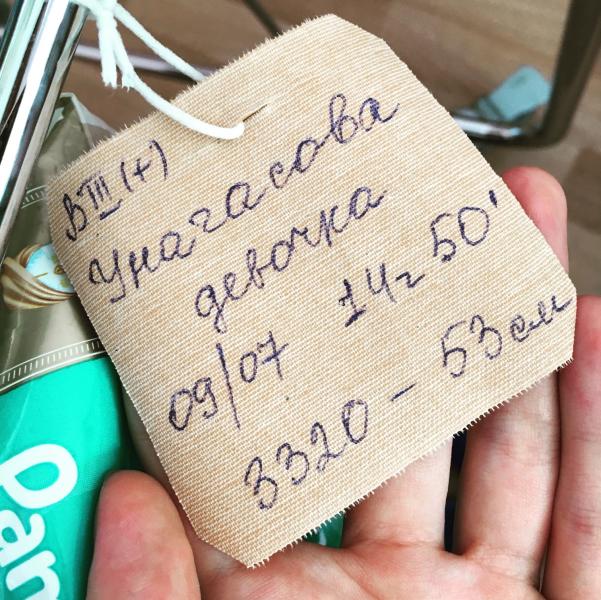 BIII(+)
Унагасова
девочка
09/07 14ч 50'
3320 - 53 см
Pam